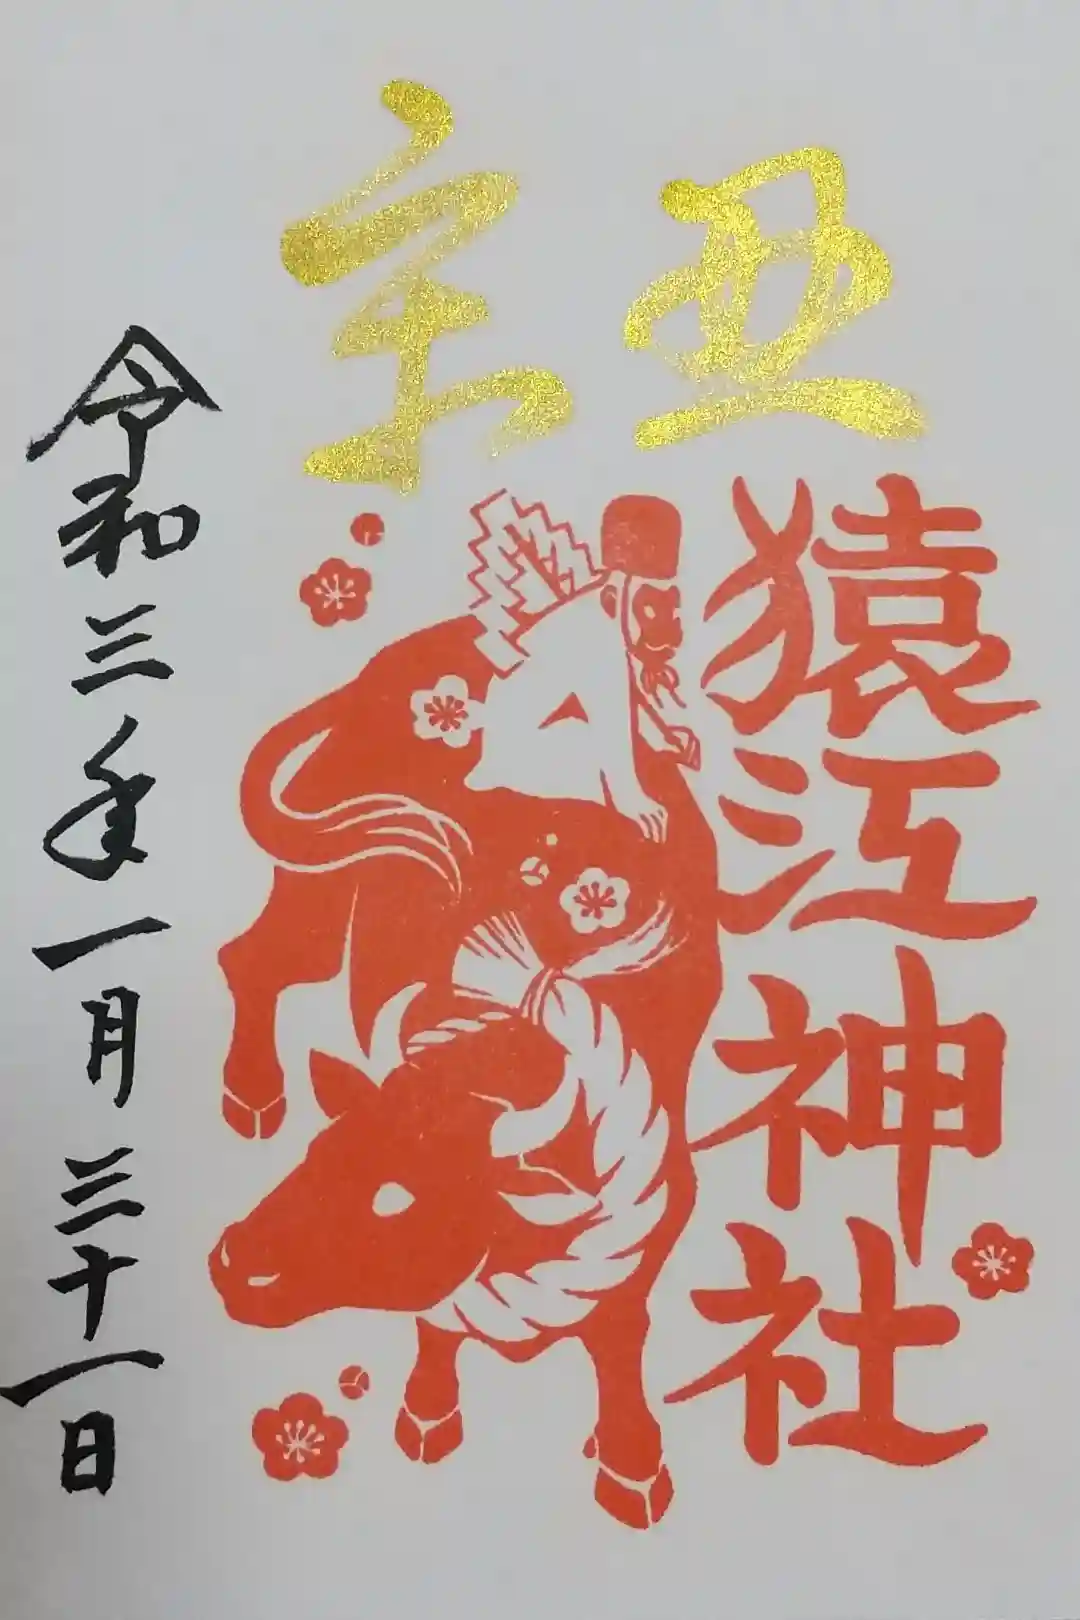 丑宝
猿江神社
令和三年一月三十一日